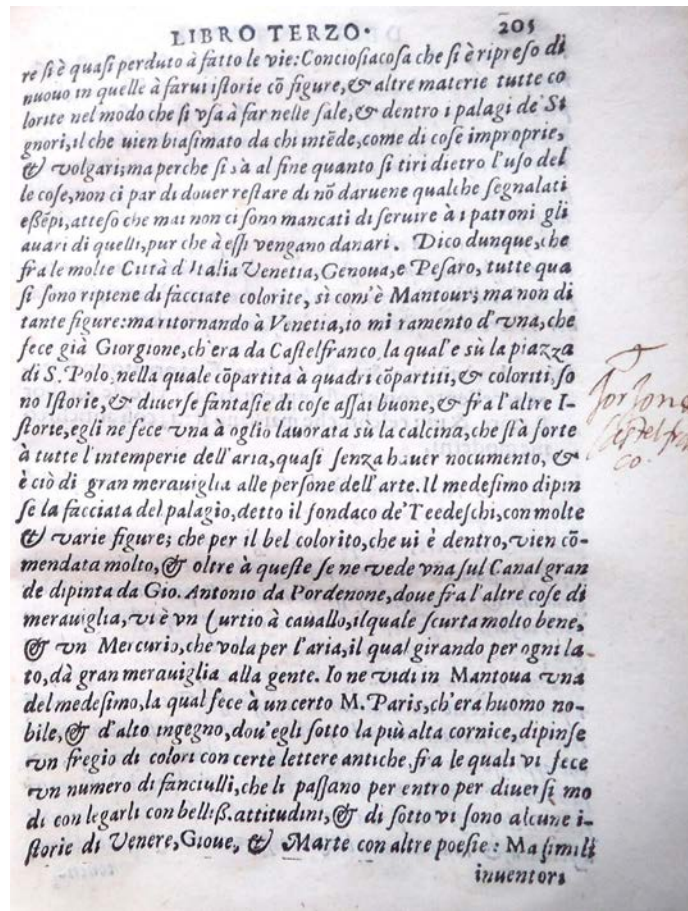 LIBRO TERZO.
205
re si è quasi perduto à fatto le vie: Conciosiacosa che si è ripreso di
nuouo in quelle à farui istorie cõ figure, & altre materie tutte co
lorite nel modo che si vsa à far nelle sale, & dentro i palagi de' Si
gnori, il che uien biasimato da chi intẽde, come di cose improprie,
& volgari; ma perche si sà al fine quanto si tiri dietro l'uso del
le cose, non ci par di douer restare di nõ daruene qualche segnalati
essẽpi, atteso che mai non ci sono mancati di seruire à i patroni gli
auari di quelli, pur che à essi vengano danari. Dico dunque, che
fra le molte Città d'Italia Venetia, Genoua, e Pesaro, tutte qua
si sono ripiene di facciate colorite, sì com'è Mantour; ma non di
tante figure: ma ritornando à Venetia, io mi ramento d'vna, che
fece già Giorgione, ch'era da Castelfranco la qual'e sù la piazza
di S. Polo, nella quale cõpartita à quadri cõpartiti, & coloriti, so
no Istorie, & diuerse fantasie di cose assai buone, & fra l'altre I-
storie, egli ne fece vna à oglio lauorata sù la calcina, che stà forte
à tutte l'intemperie dell'aria, quasi senza hauer nocumento, &
è ciò di gran merauiglia alle persone dell'arte. Il medesimo dipin
se la facciata del palagio, detto il fondaco de' Teedeschi, con molte
& varie figure; che per il bel colorito, che ui è dentro, vien cõ-
mendata molto, & oltre à queste se ne vede vna sul Canal gran
de dipinta da Gio. Antonio da Pordenone, doue fra l'altre cose di
merauiglia, vi è vn Curtio à cauallo, il quale scurta molto bene,
& vn Mercurio, che vola per l'aria, il qual girando per ogni la-
to, dà gran merauiglia alla gente. Io ne vidi in Mantoua vna
del medesimo, la qual fece à un certo M. Paris, ch'era huomo no-
bile, & d'alto ingegno, dou'egli sotto la più alta cornice, dipinse
vn fregio di colori con certe lettere antiche, fra le quali vi fece
vn numero di fanciulli, che li passano per entro per diuersi mo
di con legarli con belliss. attitudini, & di sotto vi sono alcune i-
storie di Venere, Gioue, & Marte con altre poesie: Ma simili
inuentori
Castelfran
co.